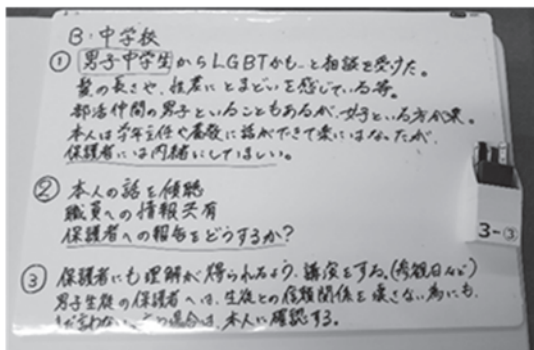 B・中学校
① 男子中学生からLGBTかも…と相談を受けた。
髪の長さや、性差にとまどいを感じている等。
部活仲間の男子といることもあるが、女子といる方が楽。
本人は学年主任や養教に話ができて楽にはなったが、
保護者には内緒にしてほしい。
② 本人の話を傾聴
職員への情報共有
保護者への報告をどうするか?
③ 保護者にも理解が得られるよう、講演をする。(参観日など)
男子生徒の保護者へは、生徒との信頼関係を壊さない為にも、
まだ言わない。言う場合は、本人に確認する。
3-③